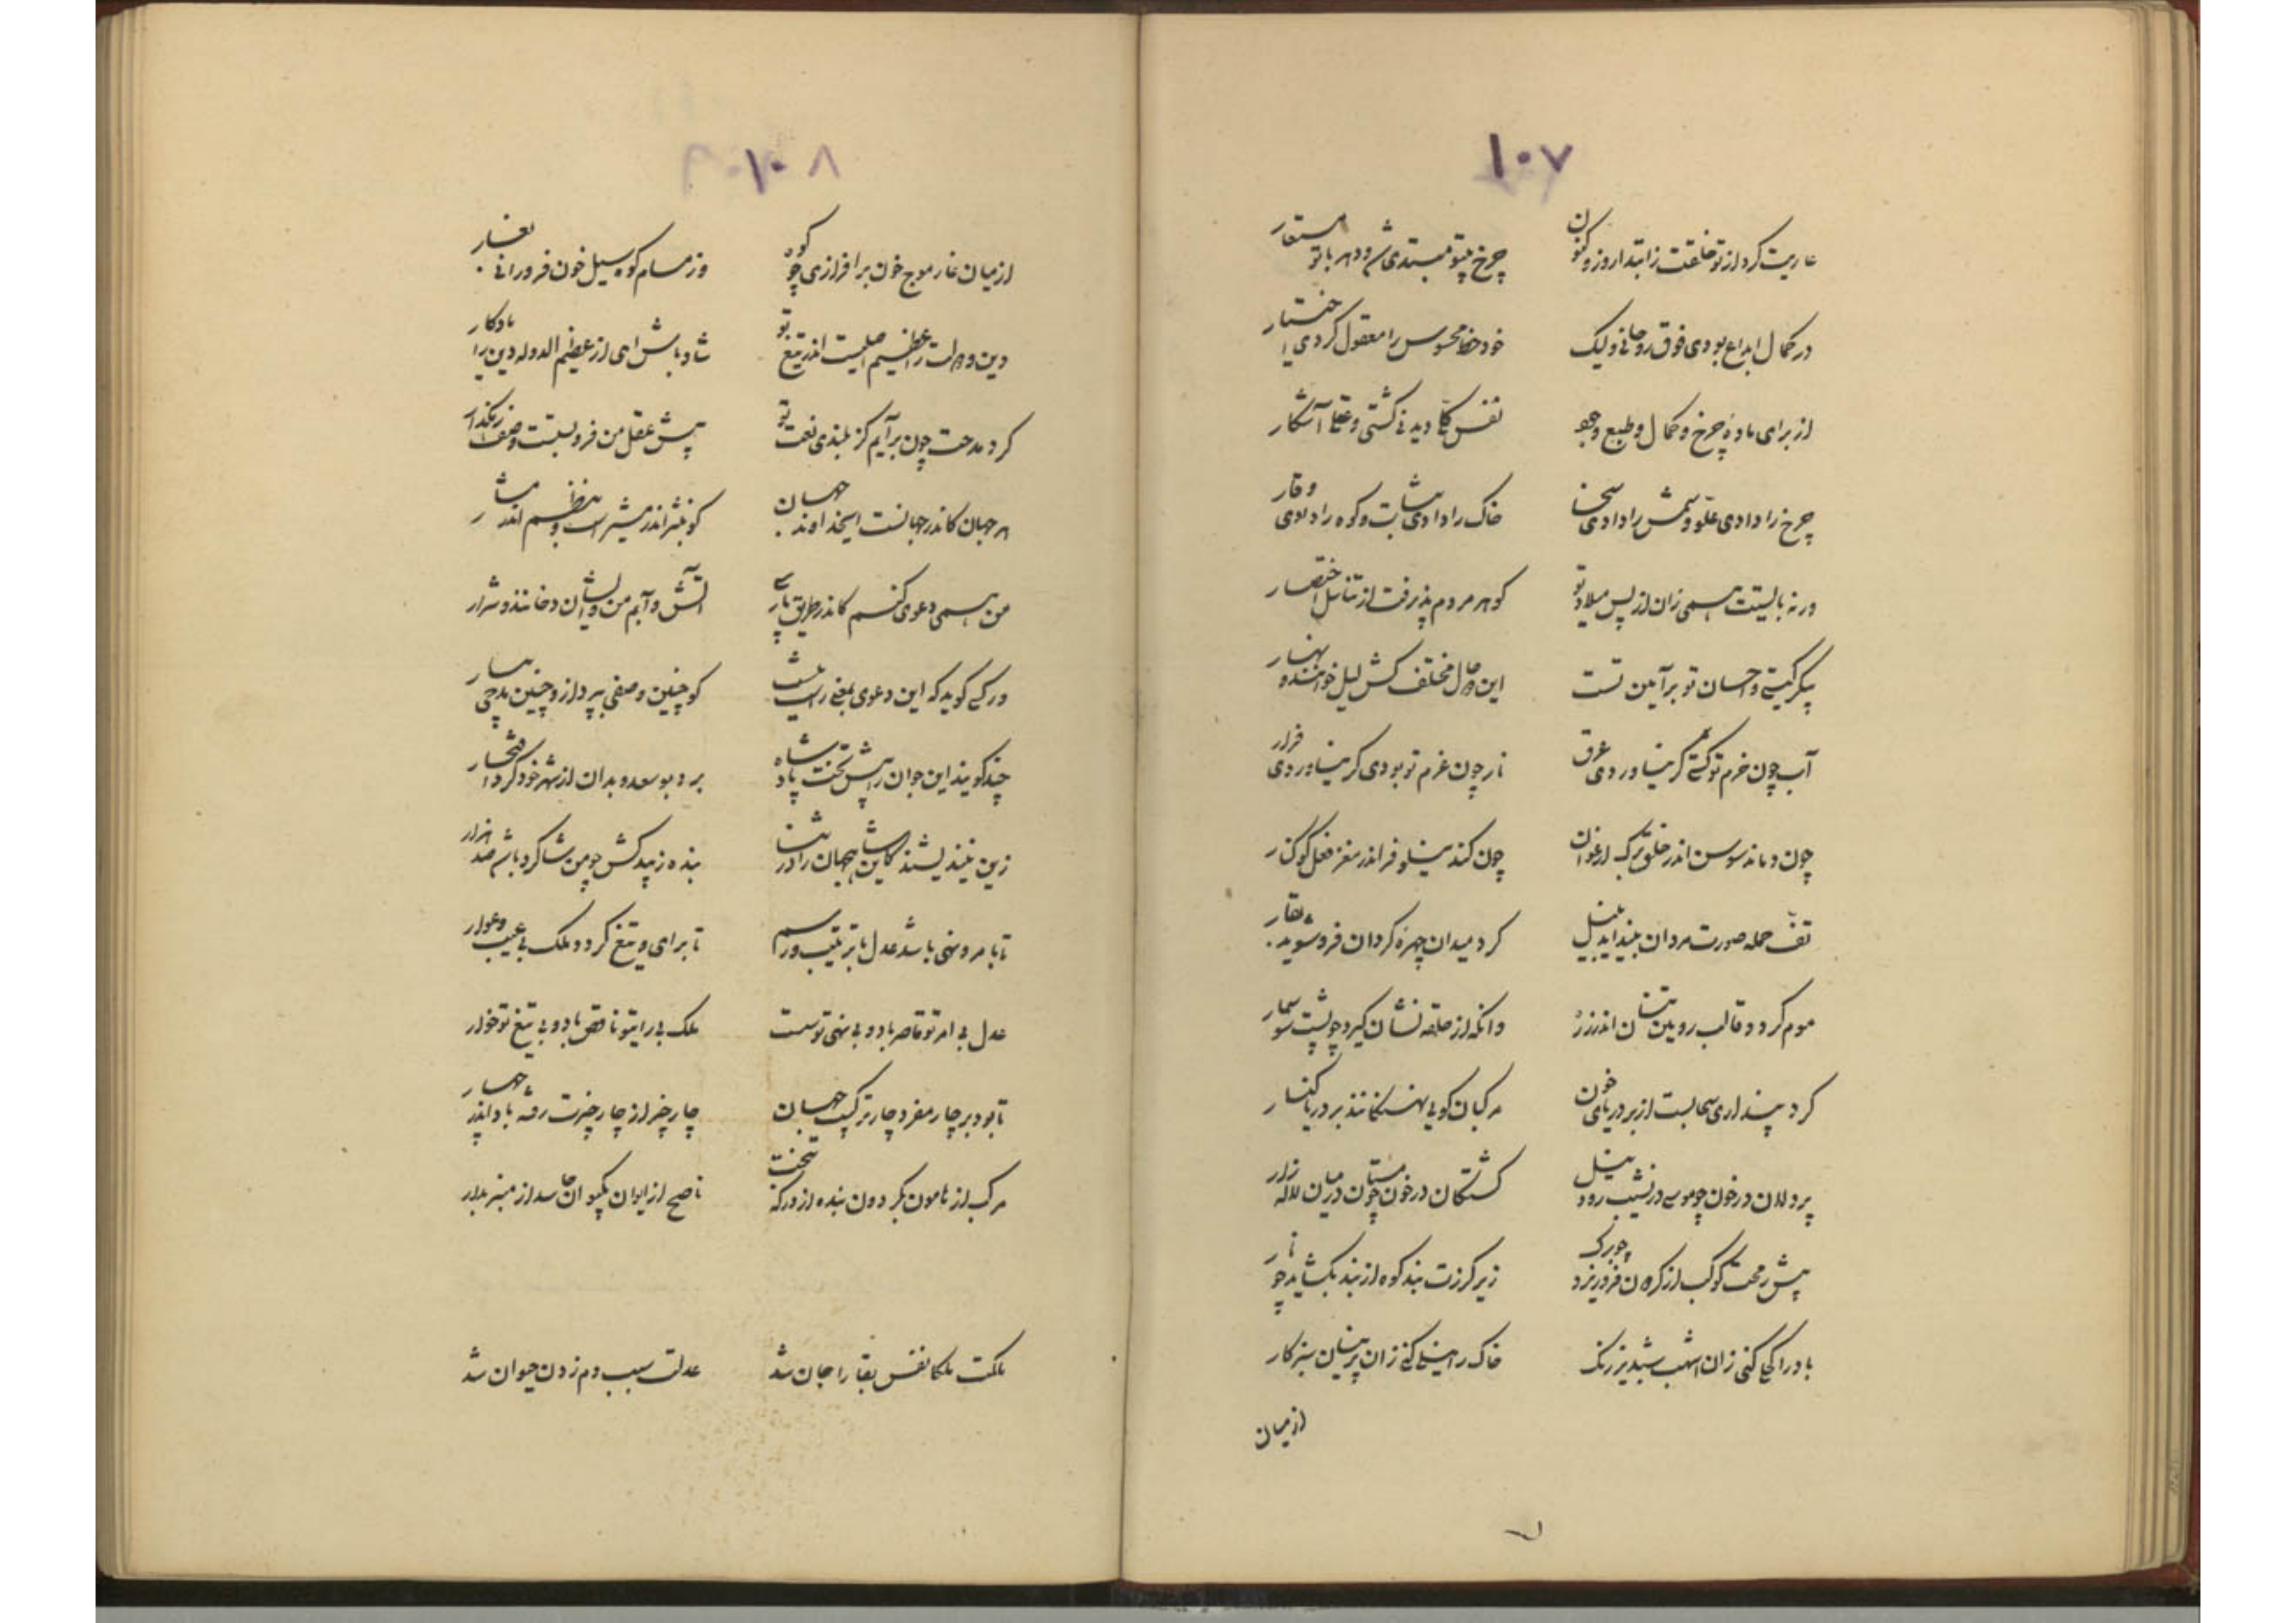 ۱۰۷
عاریت کرد از تو خلقت ز ابتدا روز و کنون چرخ بیتو مبتدی شد و دهر با تو مستعار
در کمال ابداع بودی فوق روحانی ولیک خود خط محسوس را معقول کردی اختیار
از برای ماده چرخ و کمال و طبع وجود نفس کلی دیدنی گشتی و عقل آشکار
چرخ را دادی علو و شمس را دادی سخا خاک را دادی ثبات و کوه را دادی وقار
ورنه بایستت همی زان از پس میلاد تو گوهر مردم پذیرفت از تناسل اختصار
پیکر گیتی و احسان تو بر آیین تست این دو حال مختلف کش لیل خوانند و نهار
آب چون حزم تو گشتی گر نیاوردی غرق نار چون عزم تو بودی گر نیاوردی فرار
چون دماند سوسن اندر حلق برگ ارغوان چون کند نیلوفر اندر مغز فعل کوکنار
تف حمله صورت مردان بینداید بنیل گرد میدان چهره گردان فروشوید بقار
موم گردد قالب رویین تنان اندر زره وانکه از حلقه نشان گیرد چو پشت سوسمار
گرد پنداری سحابست از بر دریای خون مرکبان گویی نهنگانند بر دریا کنار
پردلان در خون چو موسی در نشیب رود نیل کشتگان در خون چو مستان در میان لاله زار
پیش رمحت کوکب از گردون فرو ریزد چو برگ زیر گرزت بند کوه از بند بگشاید چو نار
باد را کحلی کنی زان اشهب شبدیز رنگ خاک را نیلی کنی زان پرنیان سبزکار
از میان
۱۰۸
از میان غار موج خون برافرازی چو کوه وز مسام کوه سیل خون فرو رانی بغار
دین و دولت را عظیم اصلیست اندر تیغ تو شاد باش ای از عظیم الدوله دین را یادگار
گرد مدحت چون برآیم کز بلندی نعت تو پیش عقل من فرو بستست وصفت رهگذار
هر جهان کاندر جهانست ای خداوند جهان گو بنثر اندر مشیر است و بنظم اندر مشار
من همی دعوی کنم کاندر طریق پارسی آتش و آبم من و ایشان دخانند و شرار
ور کسی گوید که این دعوی بمعنی راست نیست گو چنین وصفی بپرداز و چنین مدحی بیار
چند گویند این جوان را پیش تخت پادشاه برد بوسعد و بدان از شهر خود کرد افتخار
زین نیندیشند کاین شاه جهان را در ثنا بنده زیبد کش چو من شاگرد باشد صد هزار
تا بامر و نهی باشد عدل با ترتیب و رسم تا برای و تیغ گردد ملک بی عیب و عوار
عدل بی امر تو قاصر باد و بی نهی تو سست ملک بی رای تو ناقص باد و بی تیغ تو خوار
تا بود بر چار مفرد چار ترکیب جهان چار چیز از چار چیزت رفته باد اندر جهار
مرکب از هامون بگردون بنده از درگه بتخت ناصح از ایوان بکیوان حاسد از منبر بدار
ملکت ملکا نفس بقا را جان شد عدلت سبب دم زدن حیوان شد